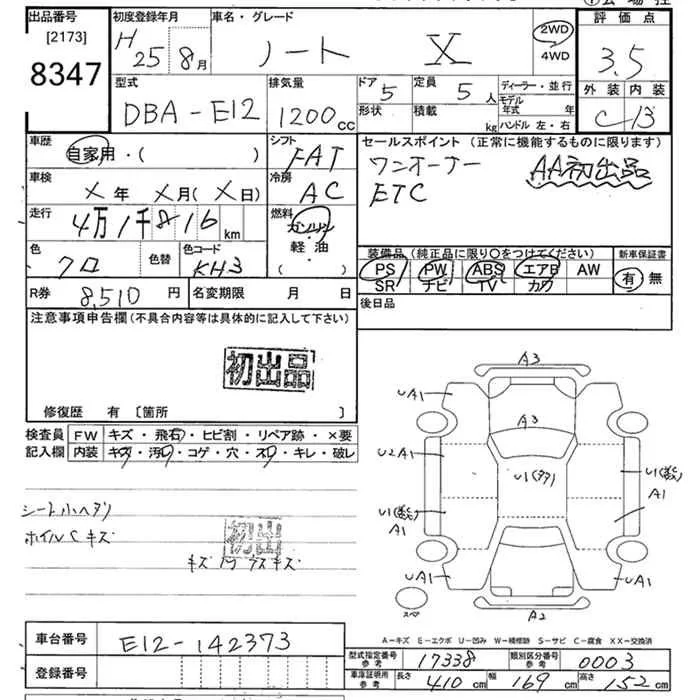 出品番号 初度登録年月 車名・グレード 評価点
[2173] H25 8月 ノート X 2WD 3.5
8347 4WD
外装 内装
型式 排気量 ドア 5 定員 5人 ディーラー・並行
DBA-E12 1200cc 形状 積載 kg モデル年式 年
ハンドル 左・右
C B
車歴 シフト セールスポイント (正常に機能するものに限ります)
自家用・( ) FAT ワンオーナー AA初出品
車検 冷房 ETC
×年 ×月(×日) AC
走行 燃料
4万1千816km ガソリン
軽・油
( )
色 色替 色コード 装備品(純正品に限り○をつけてください) 新車保証書
クロ KH3 PS PW ABS エアB AW 有 無
SR ナビ TV カワ
R券 8,510円 名変期限 月 日 後日品
注意事項申告欄(不具合内容等は具体的に記入して下さい)
初出品
修復歴 有 〔箇所 〕
検査員 FW キズ・飛石・ヒビ割・リペア跡・×要
記入欄 内装 キズ・汚レ・コゲ・穴・スレ・キレ・破レ
シート小ヘタリ
ホイルCキズ
初出
A3
UA1
A3
U2A1
U1
U1
A1
A1
UA1
UA1
スペ
A2
A-キズ E-エクボ U-凹み W-補修跡 S-サビ C-腐食 XX-交換済
車台番号 E12-142373
型式指定番号 参考 17338 類別区分番号 参考 0003
登録番号
車庫証明用 参考 長さ 410cm 幅 169cm 高さ 152cm